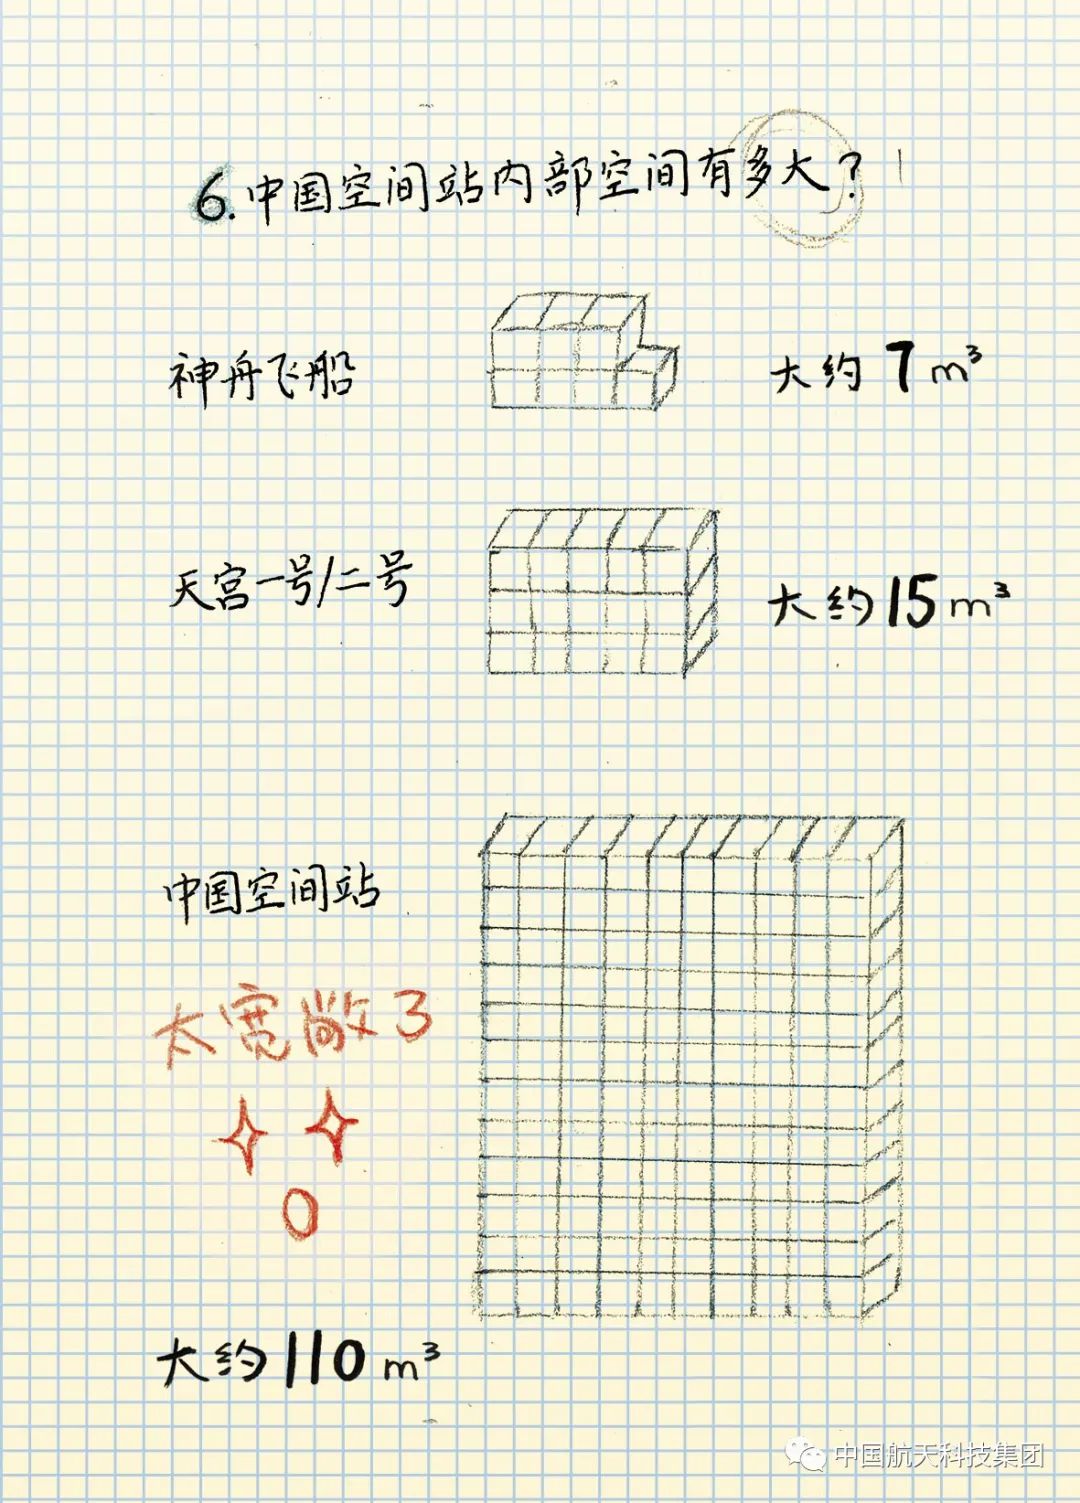 6.中国空间站内部空间有多大?
神舟飞船
大约7m³
天宫一号/二号
大约15m³
中国空间站
太宽敞了
大约110m³
中国航天科技集团